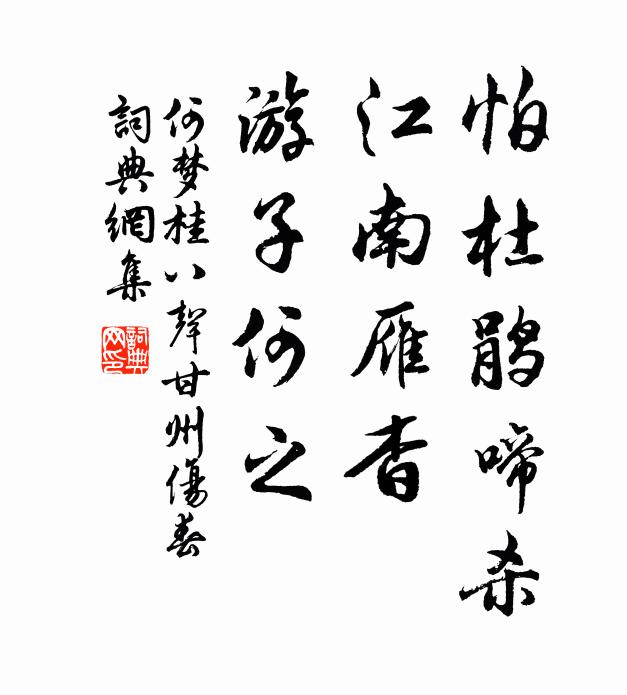 怕杜鹃啼杀
江南雁杳
游子何之
何梦桂八聲甘州傷春
詞典網集
詞典
网印